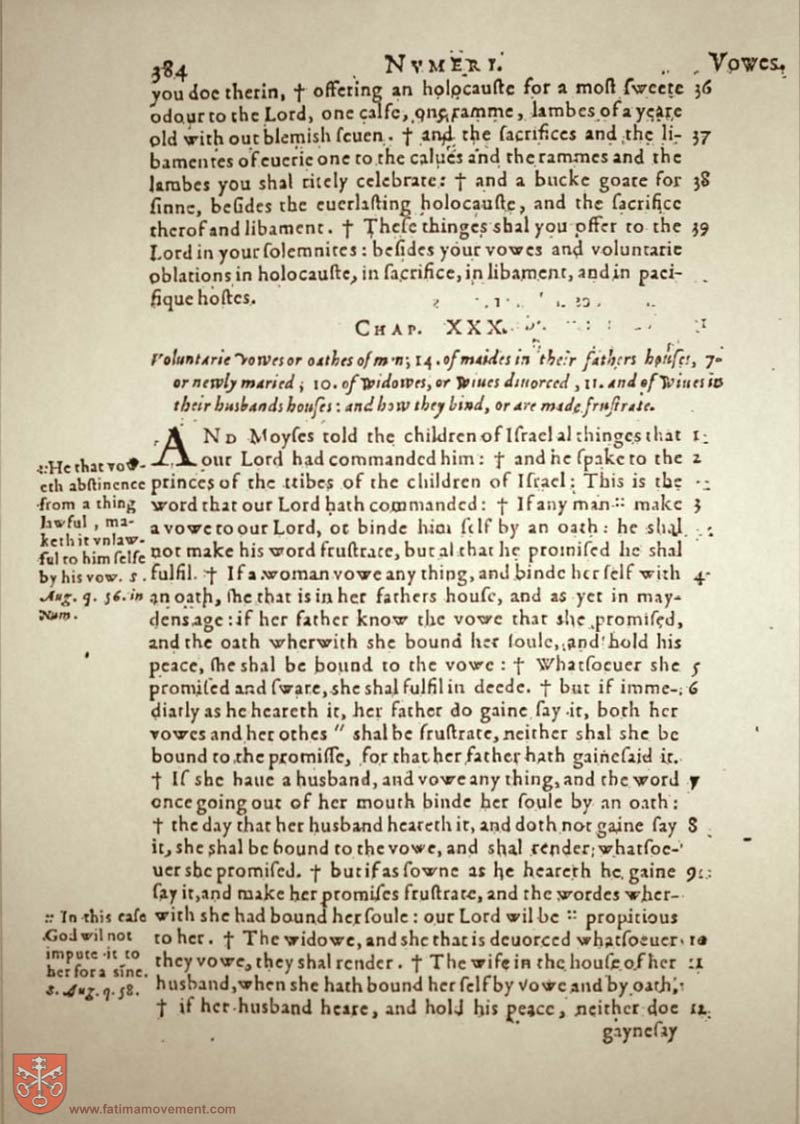 384 NVMERI. Vowes.
you doe therin, † offering an holocauſte for a moſt ſweete 36
odour to the Lord, one calfe, one ramme, lambes of a yeare
old with out blemish ſeuen. † and the ſacrifices and the li- 37
bamentes of euerie one to the calues and the rammes and the
lambes you shal ritely celebrate: † and a bucke goate for 38
ſinne, beſides the euerlaſting holocauſte, and the ſacrifice
therof and libament. † Theſe thinges shal you offer to the 39
Lord in your ſolemnites: beſides your vowes and voluntarie
oblations in holocauſte, in ſacrifice, in libament, and in paci-
fique hoſtes.
CHAP. XXX.
Voluntarie vowes or oathes of men; 14. of maides in their fathers houſes, 7.
or newly maried; 10. of widowes, or wiues diuorced, 11. and of wiues in
their husbands houſes: and how they bind, or are made fruſtrate.
AND Moyſes told the children of Iſrael al thinges that 1
our Lord had commanded him: † and he ſpake to the 2
princes of the tribes of the children of Iſrael: This is the
word that our Lord hath commanded: † If any man :: make 3
a vowe to our Lord, or binde him ſelf by an oath: he shal
not make his word fruſtrate, but al that he promiſed he shal
fulfil. † If a woman vowe any thing, and binde her ſelf with 4
an oath, ſhe that is in her fathers houſe, and as yet in may-
dens age: if her father know the vowe that she promiſed,
and the oath wherwith she bound her ſoule, and hold his
peace, ſhe shal be bound to the vowe: † Whatſoeuer she 5
promiſed and ſware, she shal fulfil in deede. † but if imme- 6
diatly as he heareth it, her father do gaine ſay it, both her
vowes and her othes " shal be fruſtrate, neither shal she be
bound to the promiſſe, for that her father hath gaineſaid it.
† If she haue a husband, and vowe any thing, and the word 7
once going out of her mouth binde her ſoule by an oath:
† the day that her husband heareth it, and doth not gaine ſay 8
it, she shal be bound to the vowe, and shal render whatſoe-
uer she promiſed. † but if as ſowne as he heareth he gaine 9
ſay it, and make her promiſes fruſtrate, and the wordes wher-
with she had bound her ſoule: our Lord wil be :: propitious
to her. † The widowe, and she that is deuorced whatſoeuer 10
they vowe, they shal render. † The wife in the houſe of her 11
husband, when she hath bound her ſelf by vowe and by oath,
† if her husband heare, and hold his peace, neither doe 12
gayneſay
:: He that vow-
eth abſtinence
from a thing
lawful, ma-
keth it vnlaw-
ful to him ſelfe
by his vow. S.
Aug. q. 56. in
Num.
:: In this caſe
God wil not
impute it to
her for a ſinne.
S. Aug. q. 58.
www.fatimamovement.com